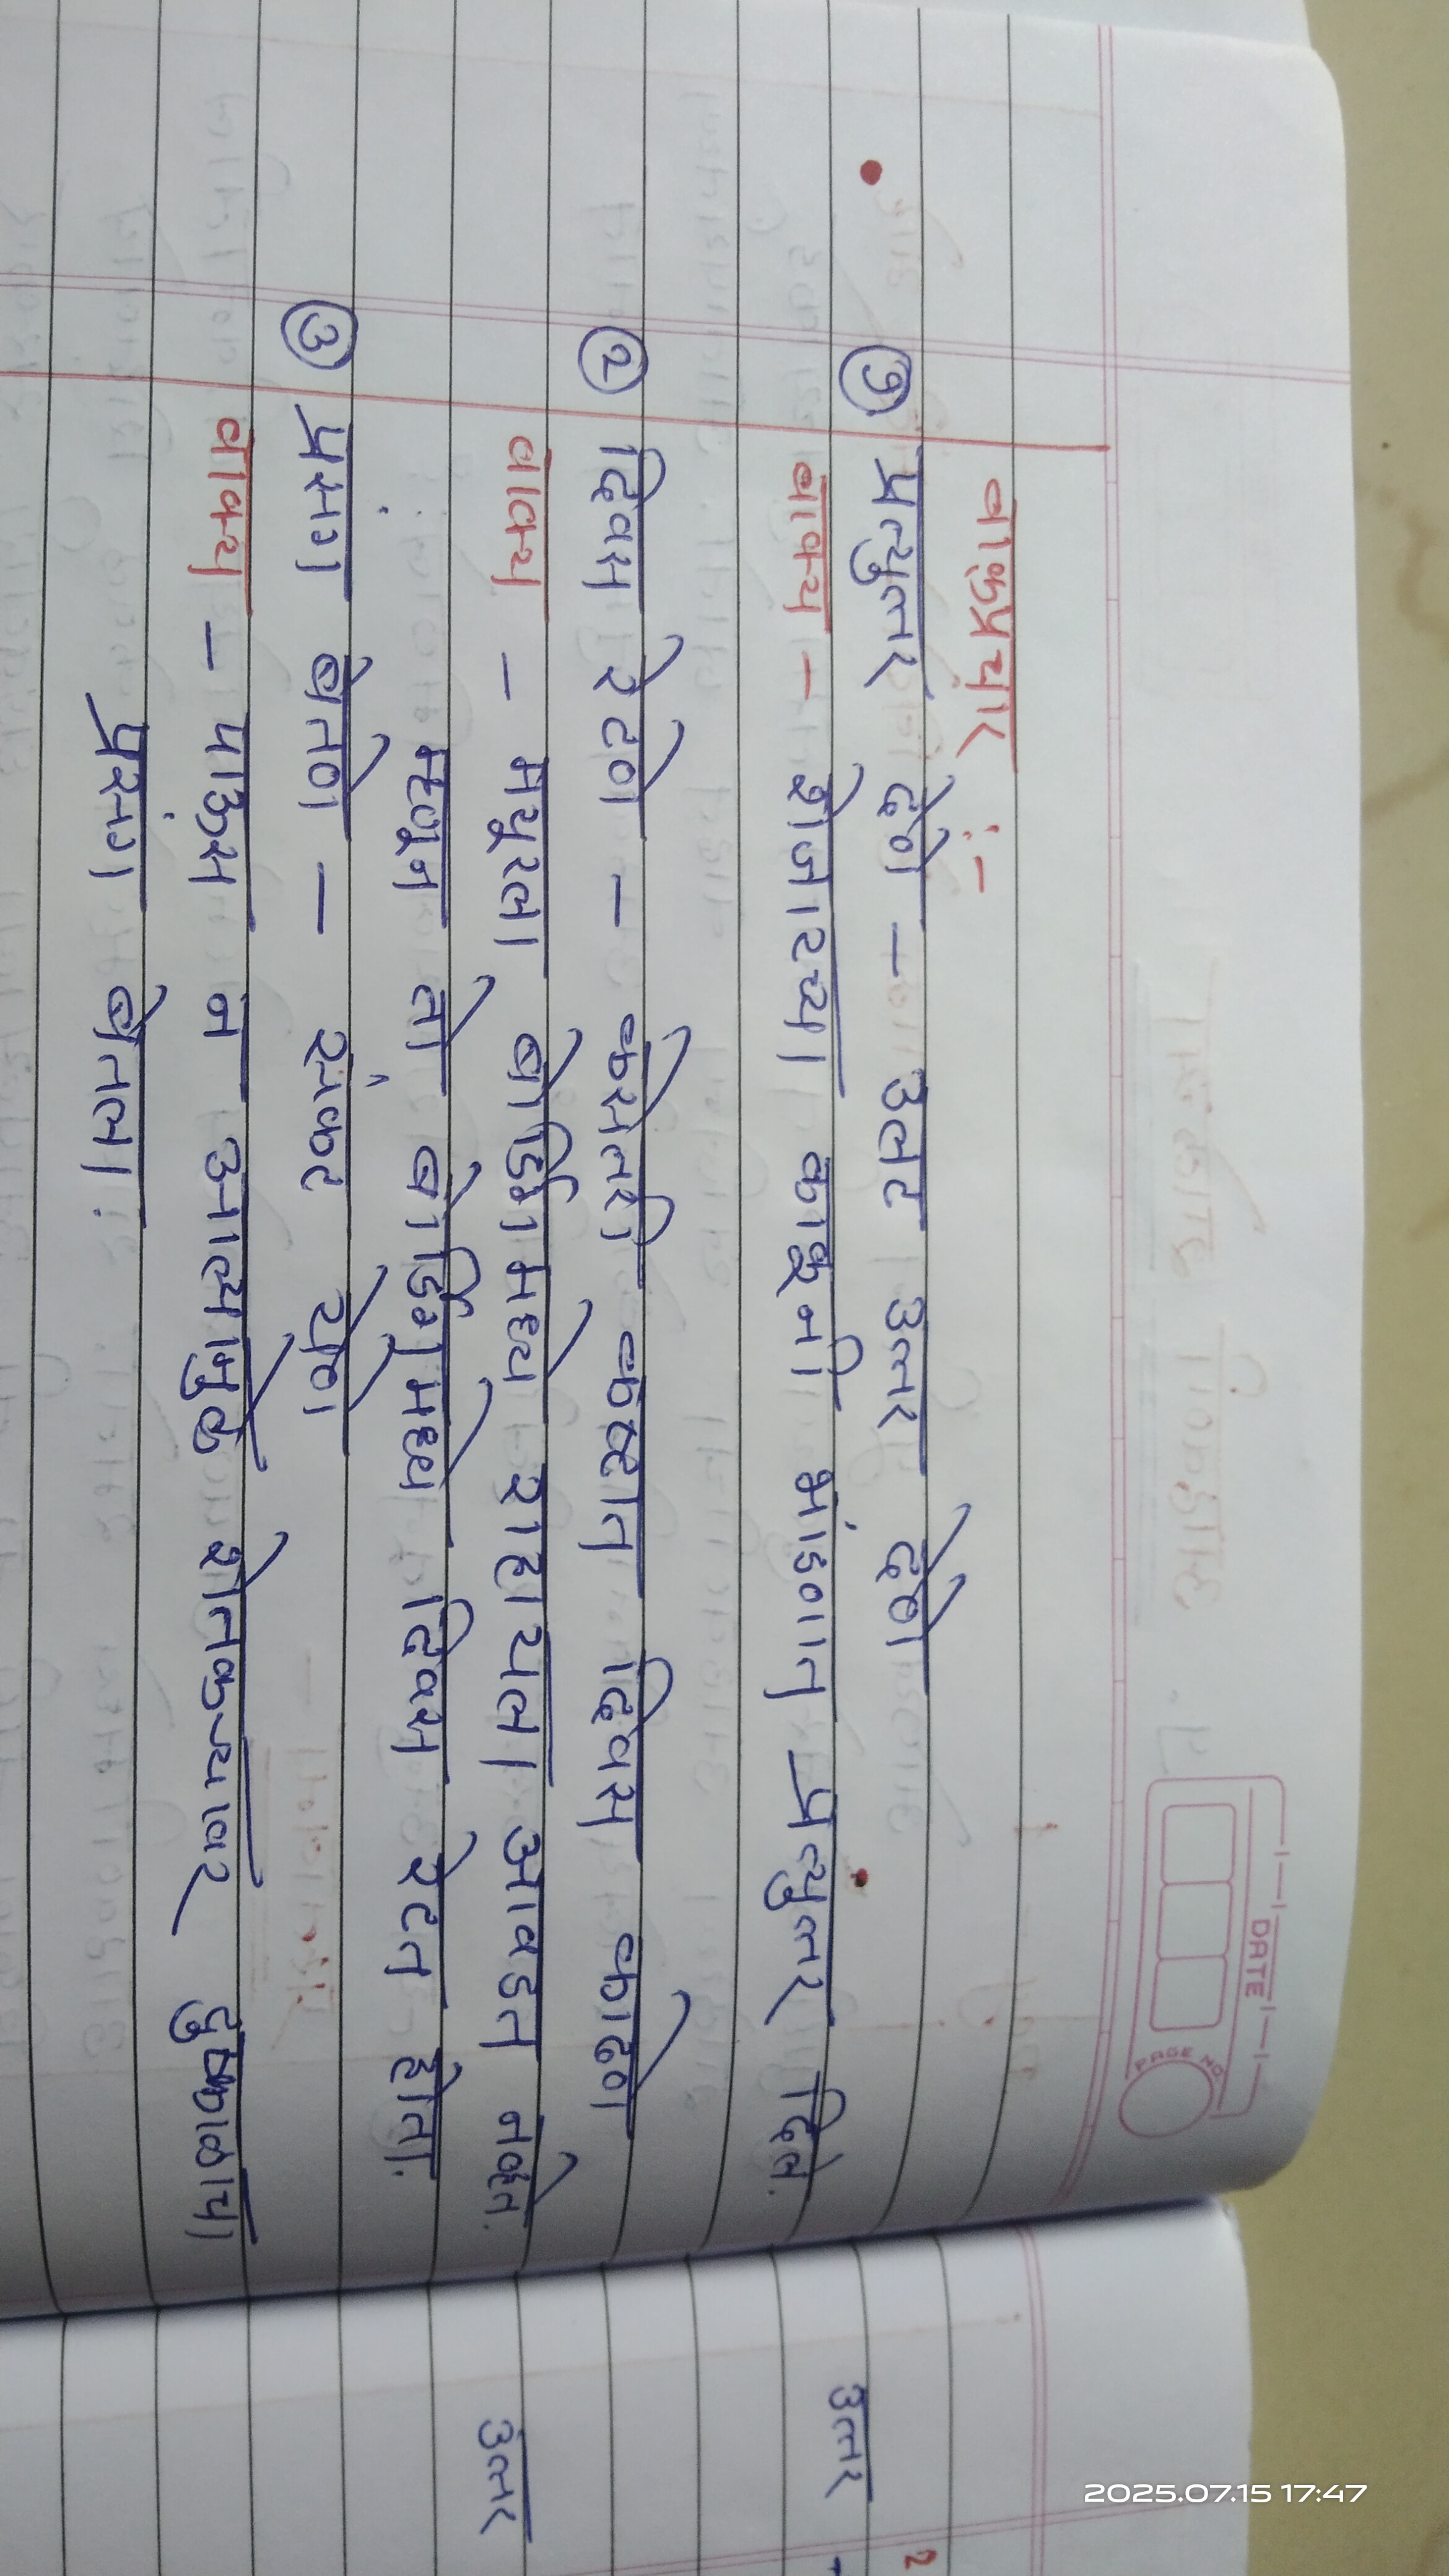 DATE
PAGE NO
वाक्प्रचार :-
१ प्रत्युत्तर देणे - उलट उत्तर देणे
वाक्य - शेजारच्या काकूंनी भांडणात प्रत्युत्तर दिले.
२ दिवस रेटणे - कसेतरी कष्टात दिवस काढणे
वाक्य - मयूरला बोर्डिंगमध्ये राहायला आवडत नव्हते.
म्हणून तो बोर्डिंगमध्ये दिवस रेटत होता.
३ प्रसंग बेतणे - संकट येणे
वाक्य - पाऊस न आल्यामुळे शेतकऱ्यावर दुष्काळाचा
प्रसंग बेतला.
उत्तर -
उत्तर
2
2025.07.15 17:47